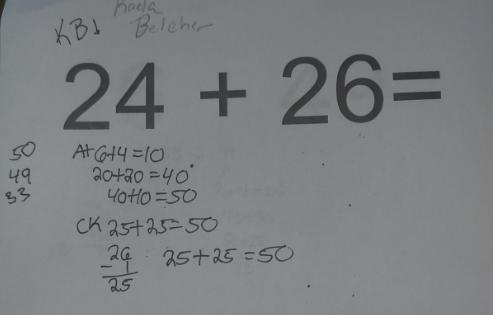 KB↓
Kaela
Belcher
24 + 26=
50 At 6+4=10
49 20+20=40
33 40+10=50
CK 25+25=50
26 25+25=50
-1
25